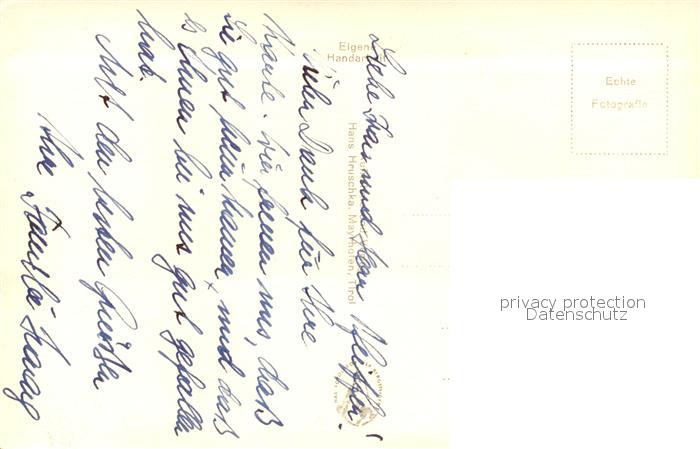 Liebe Frau und Herr Pfeiffer!
Vielen Dank für Ihre
Karte. Wir freuen uns, daß
Sie gut heim kamen und daß
es Ihnen bei uns gut gefallen
hat.
Mit den besten Grüßen
Ihre Familie
Eigene
Handarbeit
Hans Hruschka, Mayrhofen, Tirol
Echte
Fotografie
privacy protection
Datenschutz